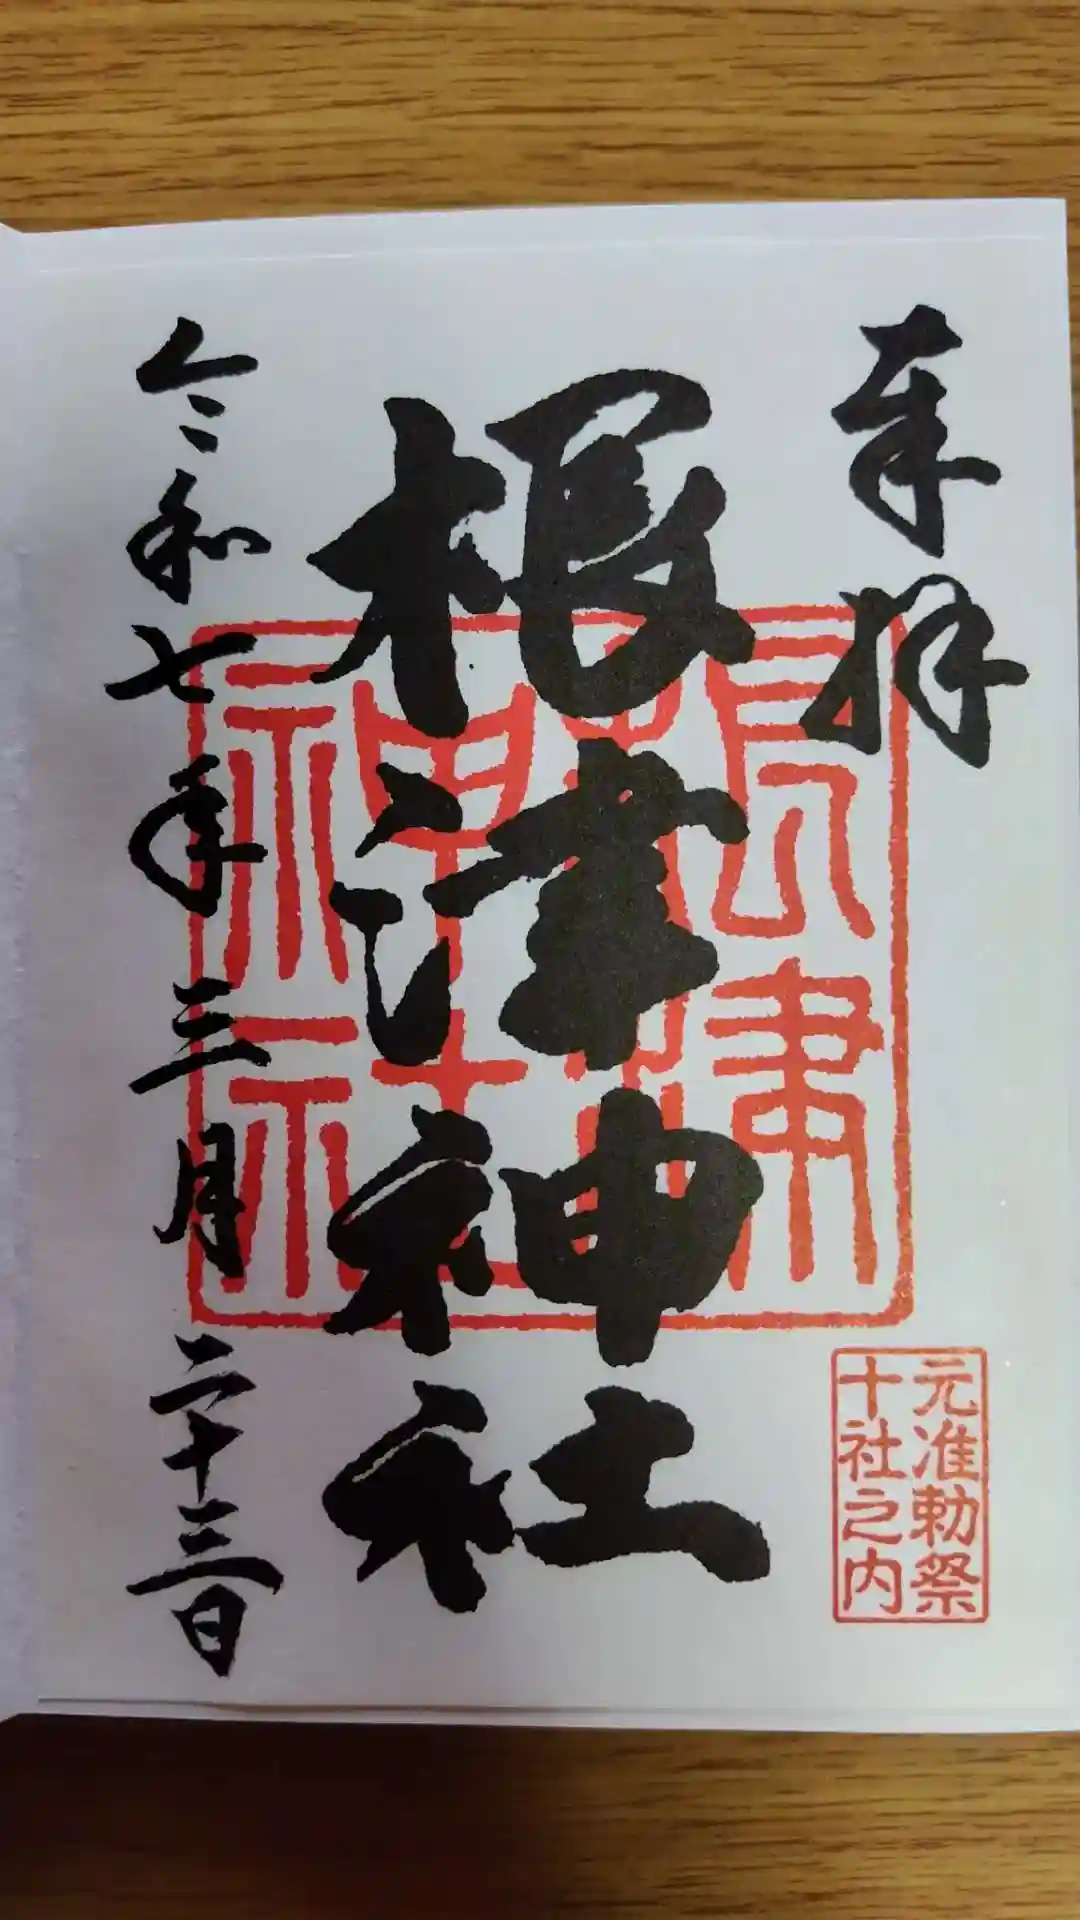 奉拝
根津神社
令和七年三月二十三日
根津
神社
元准勅祭
十社之内